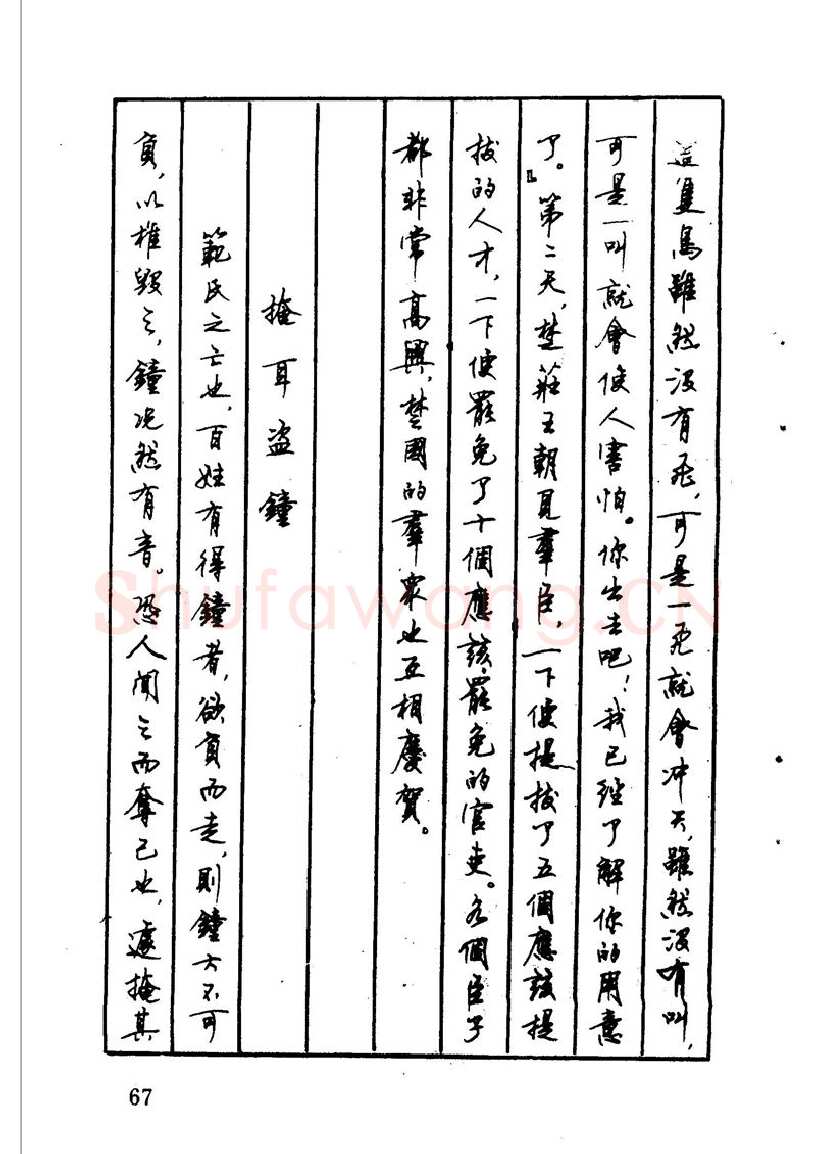 這隻鳥雖然沒有飛，可是一飛就會冲天，雖然沒有叫，
可是一叫就會使人害怕。你出去吧！我已經了解你的用意
了。』第二天，楚莊王朝見羣臣，一下便提拔了五個應該提
拔的人才，一下便罷免了十個應該罷免的官吏。各個臣子
都非常高興，楚國的羣眾也互相慶賀。
掩耳盜鐘
範氏之亡也，百姓有得鐘者，欲負而走，則鐘大不可
負，以椎毀之，鐘况然有音。恐人聞之而奪己也，遽掩其
67
Shufawang.CN